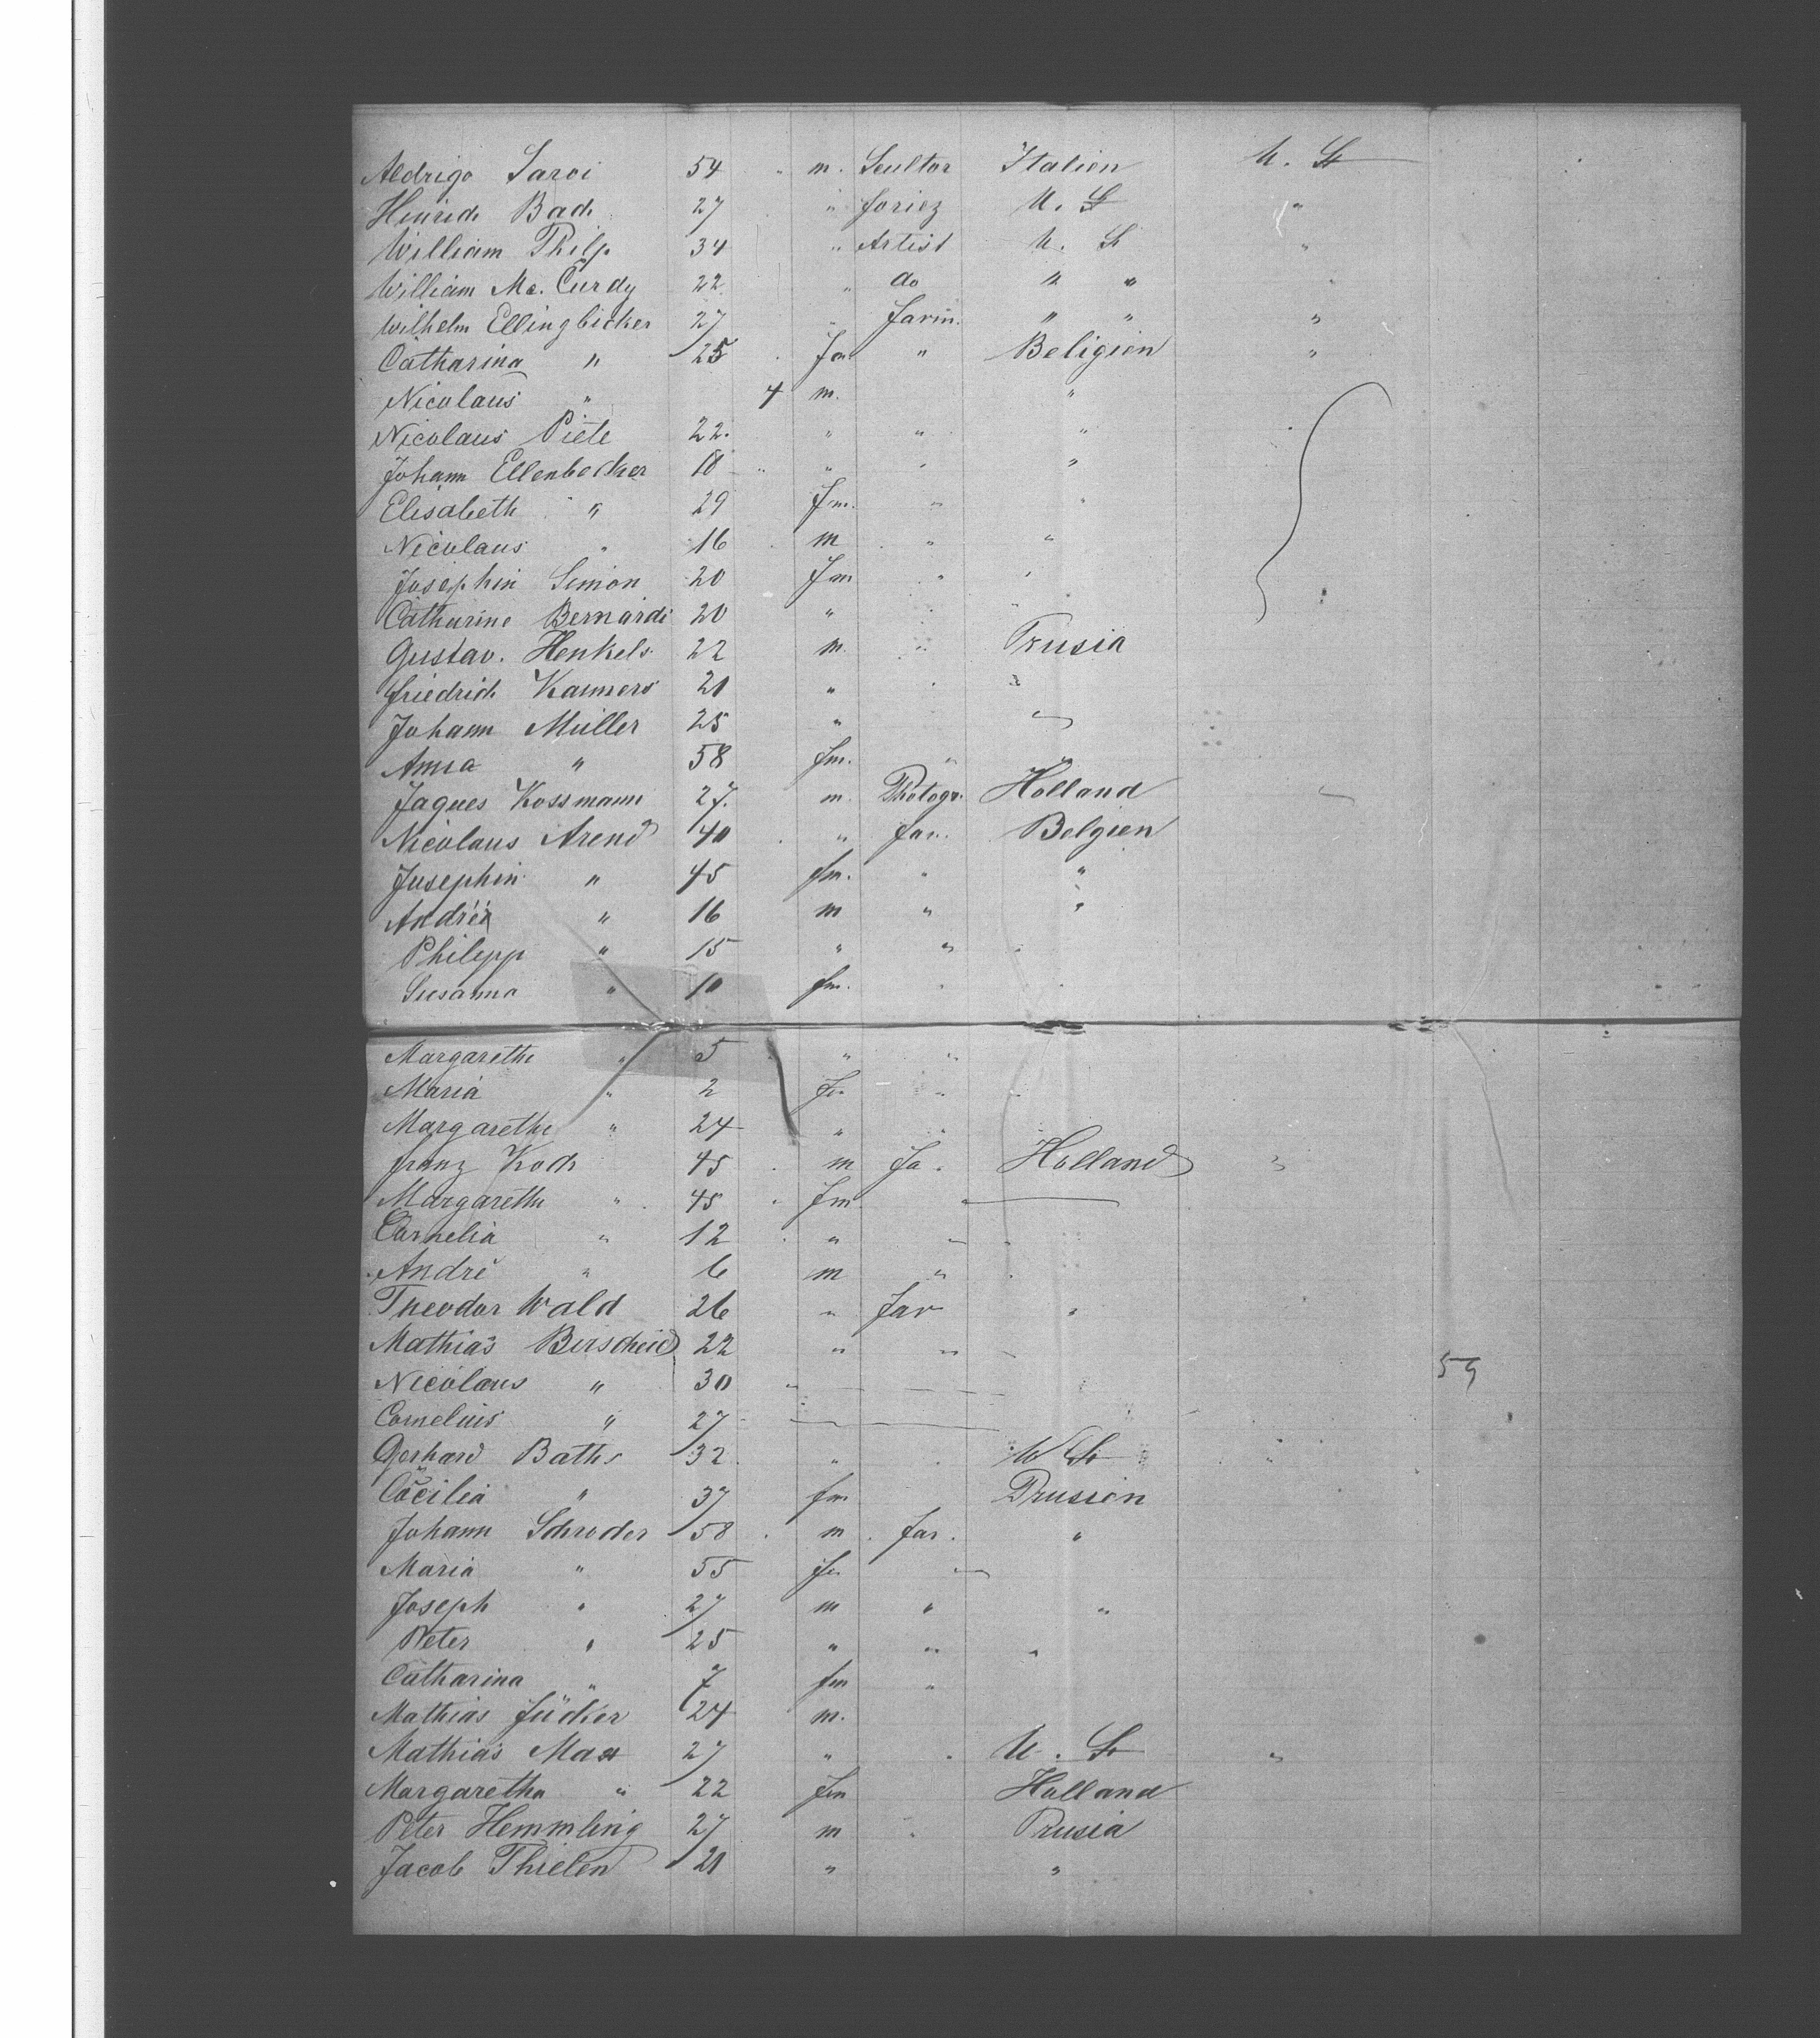 Aldrigo Saroi 54 " m. Scultor Italien U. St
Heinrich Bach 27 " foriez U. St "
William Philp 34 " Artist U. St "
William Mc. Curdy 22 " do " " "
Wilhelm Ellingbicker 27 " farm. " " "
Catharina " 25 fm " Beligien "
Nicolaus " 4 m. "
Nicolaus Piete 22. " " "
Johann Ellenbecker 18 " " " "
Elisabeth " 29 fm. " "
Nicolaus " 16 m " "
Josephin Simon 20 fm " "
Catharine Bernardi 20 " " "
Gustav. Henkels 22 m. " Prusia
Friedrich Kammers 21 " " "
Johann Müller 25 " "
Anna " 58 fm. " "
Jaques Kossmann 27. m. Photogr. Holland "
Nicolaus Arend 40 " far. Belgien
Josephin " 45 fm. " "
Andrëa " 16 m " "
Philepp " 15 " " "
Susanna " 10 fm. " "
Margarethe " 5 " "
Maria " 2 fm " "
Margarethe " 24 " "
Franz Koch 45 m Fa. Holland "
Margarethe " 45 fm
Cornelia " 12 " " "
André " 6 m "
Theodor Wald 26 " far "
Mathias Birscheid 22 " "
59
Nicolaus " 30 "
Cornelius " 27
Gerhard Baths 32 " U St "
Cäcilia " 37 fm Prussien
Johann Schroder 58 m far. "
Maria " 55 fm "
Joseph " 27 m " "
Peter " 25 " " "
Catharina " 7 fm "
Mathias Jücker 24 m.
Mathias Maas 27 " U. St "
Margaretha " 22 fm Holland
Peter Hemmling 27 m " Prusia
Jacob Thielen 21 " "